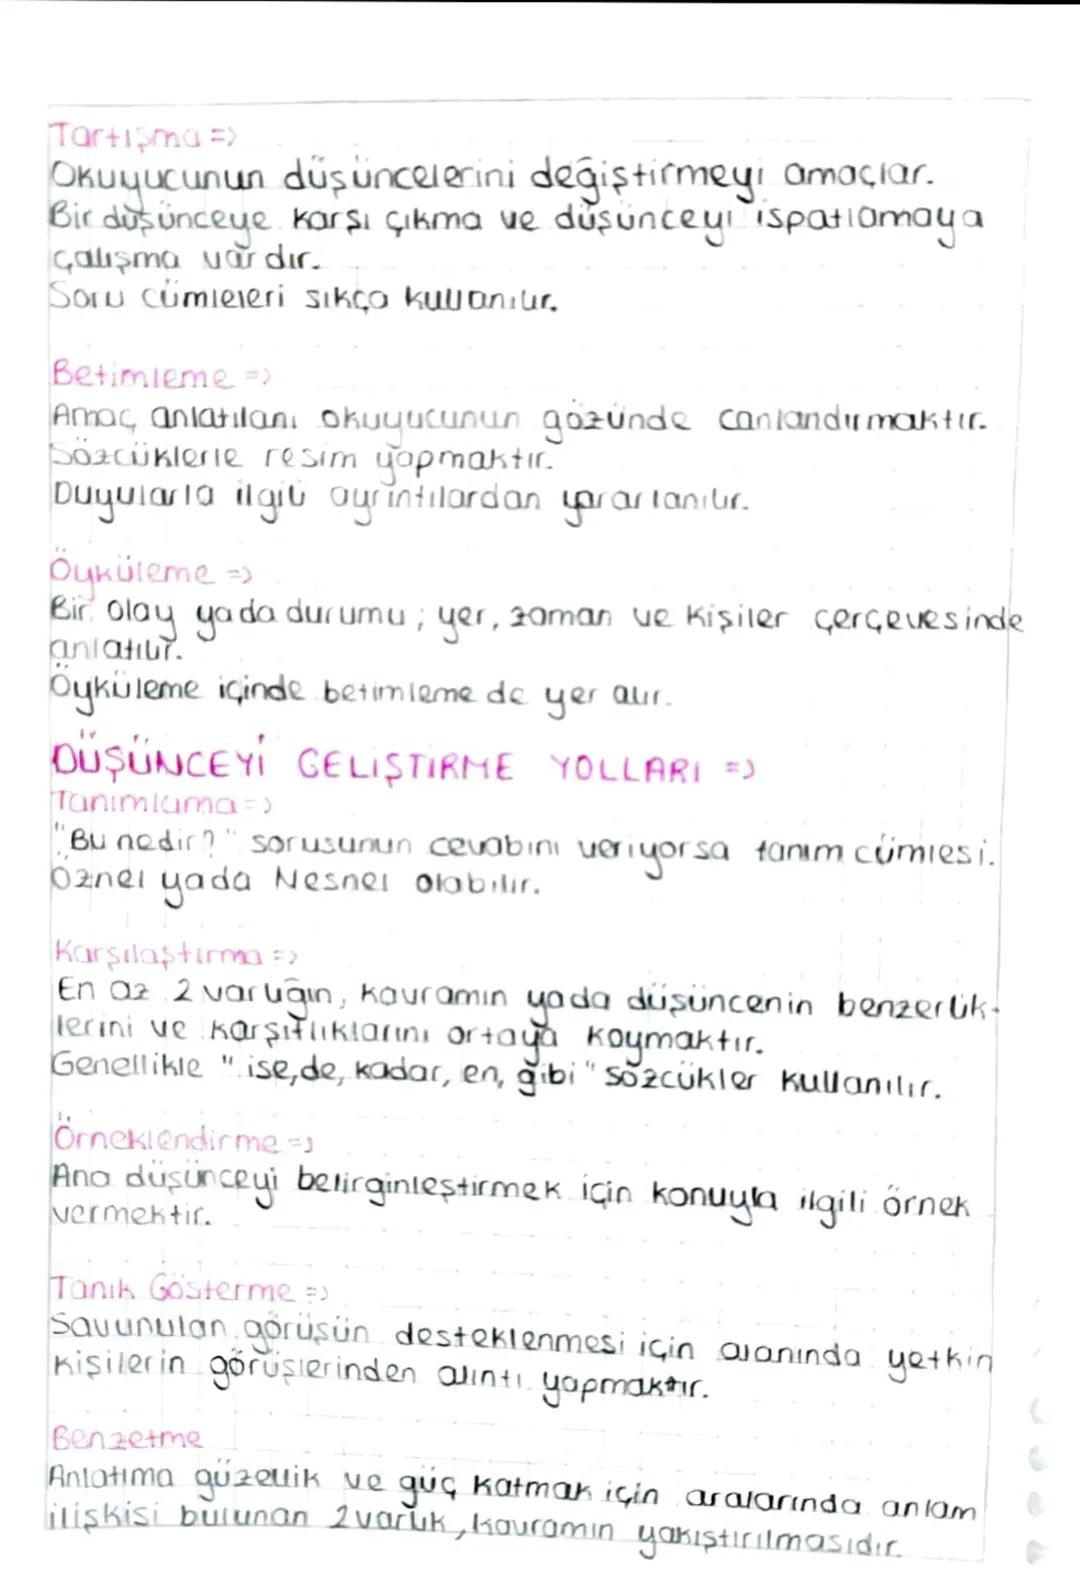 Tartışma =>
Okuyucunun düşüncelerini değiştirmeyi amaçlar.
Bir düşünceye karşı çıkma ve düşünceyi ispatlamaya
çalışma vardır.
Soru cümleleri sıkça kullanılır.
Betimleme =>
Amaç anlatılanı okuyucunun gözünde canlandırmaktır.
Sözcüklerle resim yapmaktır.
Duyularla ilgili ayrıntılardan yararlanılır.
Öyküleme =>
Bir olay yada durumu; yer, zaman ve kişiler çerçevesinde
anlatılır.
Öyküleme içinde betimleme de yer alır.
DÜŞÜNCEYİ GELİŞTİRME YOLLARI =>
Tanımlama =>
"Bu nedir?" sorusunun cevabını veriyorsa tanım cümlesi.
Öznel yada Nesnel olabilir.
Karşılaştırma =>
En az 2 varlığın, kavramın yada düşüncenin benzerlik-
lerini ve karşıtlıklarını ortaya koymaktır.
Genellikle "ise, de, kadar, en, gibi" sözcükler kullanılır.
Örneklendirme =>
Ana düşünceyi belirginleştirmek için konuyla ilgili örnek
vermektir.
Tanık Gösterme =>
Savunulan görüşün desteklenmesi için alanında yetkin
kişilerin görüşlerinden alıntı yapmaktır.
Benzetme
Anlatıma güzellik ve güç katmak için aralarında anlam
ilişkisi bulunan 2 varlık, kavramın yakıştırılmasıdır.